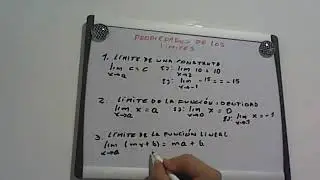 PROPIEDADES DE LOS
LÍMITES
1. LÍMITE DE UNA CONSTANTE
lim c = c Ej: lim 10 = 10
x→a x→2
Ej: lim -15 = -15
x→-1
2. LÍMITE DE LA FUNCIÓN IDENTIDAD
lim x = a Ej: lim x = 0 Ej: lim x = -1
x→a x→0 x→-1
3. LÍMITE DE LA FUNCIÓN LINEAL
lim (mx+b) = ma+b
x→a